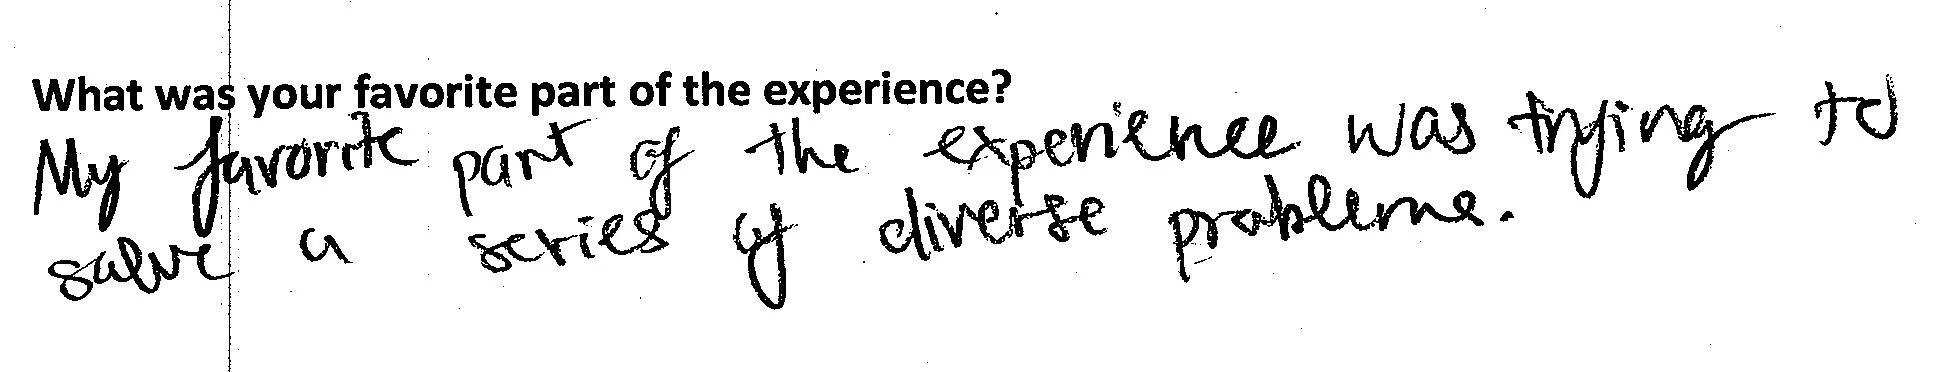 What was your favorite part of the experience?
My favorite part of the experience was trying to
solve a series of diverse problems.